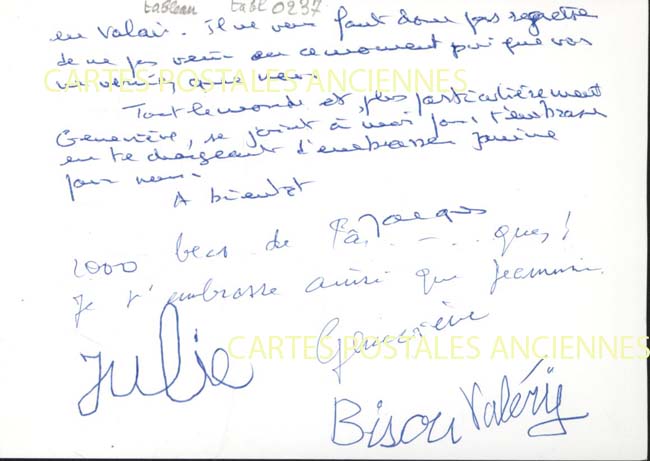 tableau tabl 0237
en Valais. Il ne vous faut donc pas regretter
de ne pas venir en ce moment puisque vos
CARTES POSTALES ANCIENNES
Tout le monde et, plus particulièrement
Geneviève, se joint à moi pour t'embrasser
en te chargeant d'embrasser Janine
pour nous.
A bientôt
Jacques
1000 becs de Pâ. - - . ques!
Je t'embrasse ainsi que Jeannine.
Geneviève
Julie
CARTES POSTALES ANCIENNES
Bisou Valéry